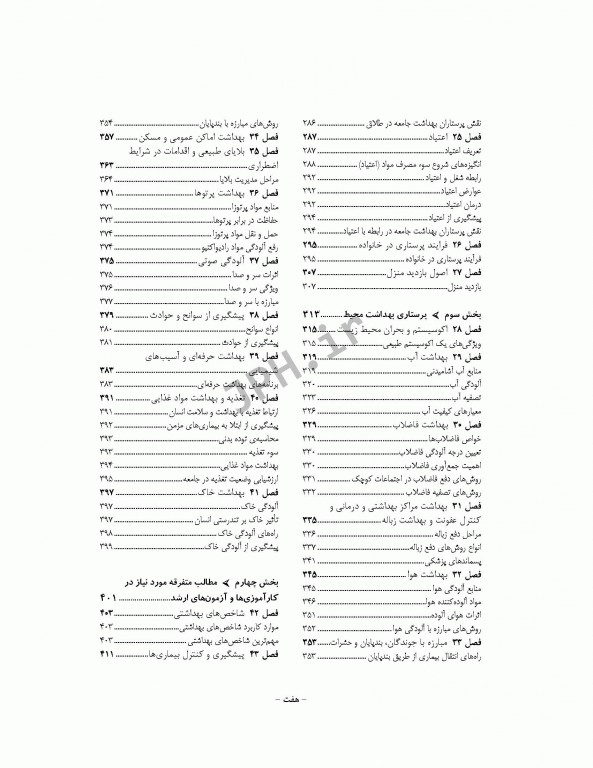 نقش پرستاران بهداشت جامعه در طلاق ........................ ۲۸۶
فصل ۲۵ اعتیاد ........................ ۲۸۷
تعریف اعتیاد ........................ ۲۸۷
انگیزه‌های شروع سوء مصرف مواد (اعتیاد) ........................ ۲۸۸
رابطه شغل و اعتیاد ........................ ۲۹۲
عوارض اعتیاد ........................ ۲۹۲
درمان اعتیاد ........................ ۲۹۲
پیشگیری از اعتیاد ........................ ۲۹۴
نقش پرستاران بهداشت جامعه در رابطه با اعتیاد ........................ ۲۹۴
فصل ۲۶ فرایند پرستاری در خانواده ........................ ۲۹۵
فرآیند پرستاری در خانواده ........................ ۲۹۵
فصل ۲۷ اصول بازدید منزل ........................ ۳۰۷
بازدید منزل ........................ ۳۰۷
بخش سوم ➤ پرستاری بهداشت محیط ........................ ۳۱۳
فصل ۲۸ اکوسیستم و بحران محیط زیست ........................ ۳۱۵
ویژگی‌های یک اکوسیستم طبیعی ........................ ۳۱۵
فصل ۲۹ بهداشت آب ........................ ۳۱۹
منابع آب آشامیدنی ........................ ۳۱۹
آلودگی آب ........................ ۳۲۰
تصفیه آب ........................ ۳۲۳
معیارهای کیفیت آب ........................ ۳۲۶
فصل ۳۰ بهداشت فاضلاب ........................ ۳۲۹
خواص فاضلاب‌ها ........................ ۳۲۹
تعیین درجه آلودگی فاضلاب ........................ ۳۳۰
اهمیت جمع‌آوری فاضلاب ........................ ۳۳۰
روش‌های دفع فاضلاب در اجتماعات کوچک ........................ ۳۳۱
روش‌های تصفیه فاضلاب ........................ ۳۳۲
فصل ۳۱ بهداشت مراکز بهداشتی و درمانی و
کنترل عفونت و بهداشت زباله ........................ ۳۳۵
مراحل دفع زباله ........................ ۳۳۶
انواع روش‌های دفع زباله ........................ ۳۳۷
پسماندهای پزشکی ........................ ۳۴۱
فصل ۳۲ بهداشت هوا ........................ ۳۴۵
منابع آلودگی هوا ........................ ۳۴۵
مواد آلوده‌کننده هوا ........................ ۳۴۶
اثرات هوای آلوده ........................ ۳۵۱
روش‌های مبارزه با آلودگی هوا ........................ ۳۵۲
فصل ۳۳ مبارزه با جوندگان، بندپایان و حشرات ........................ ۳۵۳
راه‌های انتقال بیماری از طریق بندپایان ........................ ۳۵۳
روش‌های مبارزه با بندپایان ........................ ۳۵۴
فصل ۳۴ بهداشت اماکن عمومی و مسکن ........................ ۳۵۷
فصل ۳۵ بلایای طبیعی و اقدامات در شرایط
اضطراری ........................ ۳۶۳
مراحل مدیریت بلایا ........................ ۳۶۴
فصل ۳۶ بهداشت پرتوها ........................ ۳۷۱
منابع مواد پرتوزا ........................ ۳۷۱
حفاظت در برابر پرتوها ........................ ۳۷۳
حمل و نقل مواد پرتوزا ........................ ۳۷۴
رفع آلودگی مواد رادیواکتیو ........................ ۳۷۴
فصل ۳۷ آلودگی صوتی ........................ ۳۷۵
اثرات سر و صدا ........................ ۳۷۵
ویژگی سر و صدا ........................ ۳۷۶
مبارزه با سر و صدا ........................ ۳۷۷
فصل ۳۸ پیشگیری از سوانح و حوادث ........................ ۳۷۹
انواع سوانح ........................ ۳۸۰
پیشگیری از حوادث ........................ ۳۸۱
فصل ۳۹ بهداشت حرفه‌ای و آسیب‌های
شیمیایی ........................ ۳۸۳
برنامه‌های بهداشت حرفه‌ای ........................ ۳۸۳
فصل ۴۰ تغذیه و بهداشت مواد غذایی ........................ ۳۹۱
ارتباط تغذیه با بهداشت و سلامت انسان ........................ ۳۹۱
پیشگیری از ابتلا به بیماری‌های مزمن ........................ ۳۹۲
محاسبه‌ی توده بدنی ........................ ۳۹۳
سوء تغذیه ........................ ۳۹۳
بهداشت مواد غذایی ........................ ۳۹۴
ارزشیابی وضعیت تغذیه در جامعه ........................ ۳۹۵
فصل ۴۱ بهداشت خاک ........................ ۳۹۷
آلودگی خاک ........................ ۳۹۷
تأثیر خاک بر تندرستی انسان ........................ ۳۹۷
راه‌های آلودگی خاک ........................ ۳۹۸
پیشگیری از آلودگی خاک ........................ ۳۹۹
بخش چهارم ➤ مطالب متفرقه مورد نیاز در
کارآموزی‌ها و آزمون‌های ارشد ........................ ۴۰۱
فصل ۴۲ شاخص‌های بهداشتی ........................ ۴۰۳
موارد کاربرد شاخص‌های بهداشتی ........................ ۴۰۳
مهم‌ترین شاخص‌های بهداشتی ........................ ۴۰۳
فصل ۴۳ پیشگیری و کنترل بیماری‌ها ........................ ۴۱۱
- هفت -
JPH.ir